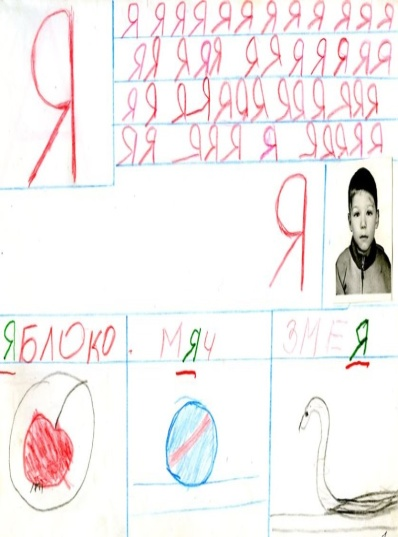 Я
Я Я Я Я Я Я Я Я Я Я Я Я Я
Я Я Я Я Я Я Я Я Я Я Я Я Я
Я Я Я Я Я Я Я Я Я Я Я Я Я
Я Я Я Я Я Я Я Я Я Я Я
Я
ЯБЛОКО. МЯЧ ЗМЕЯ